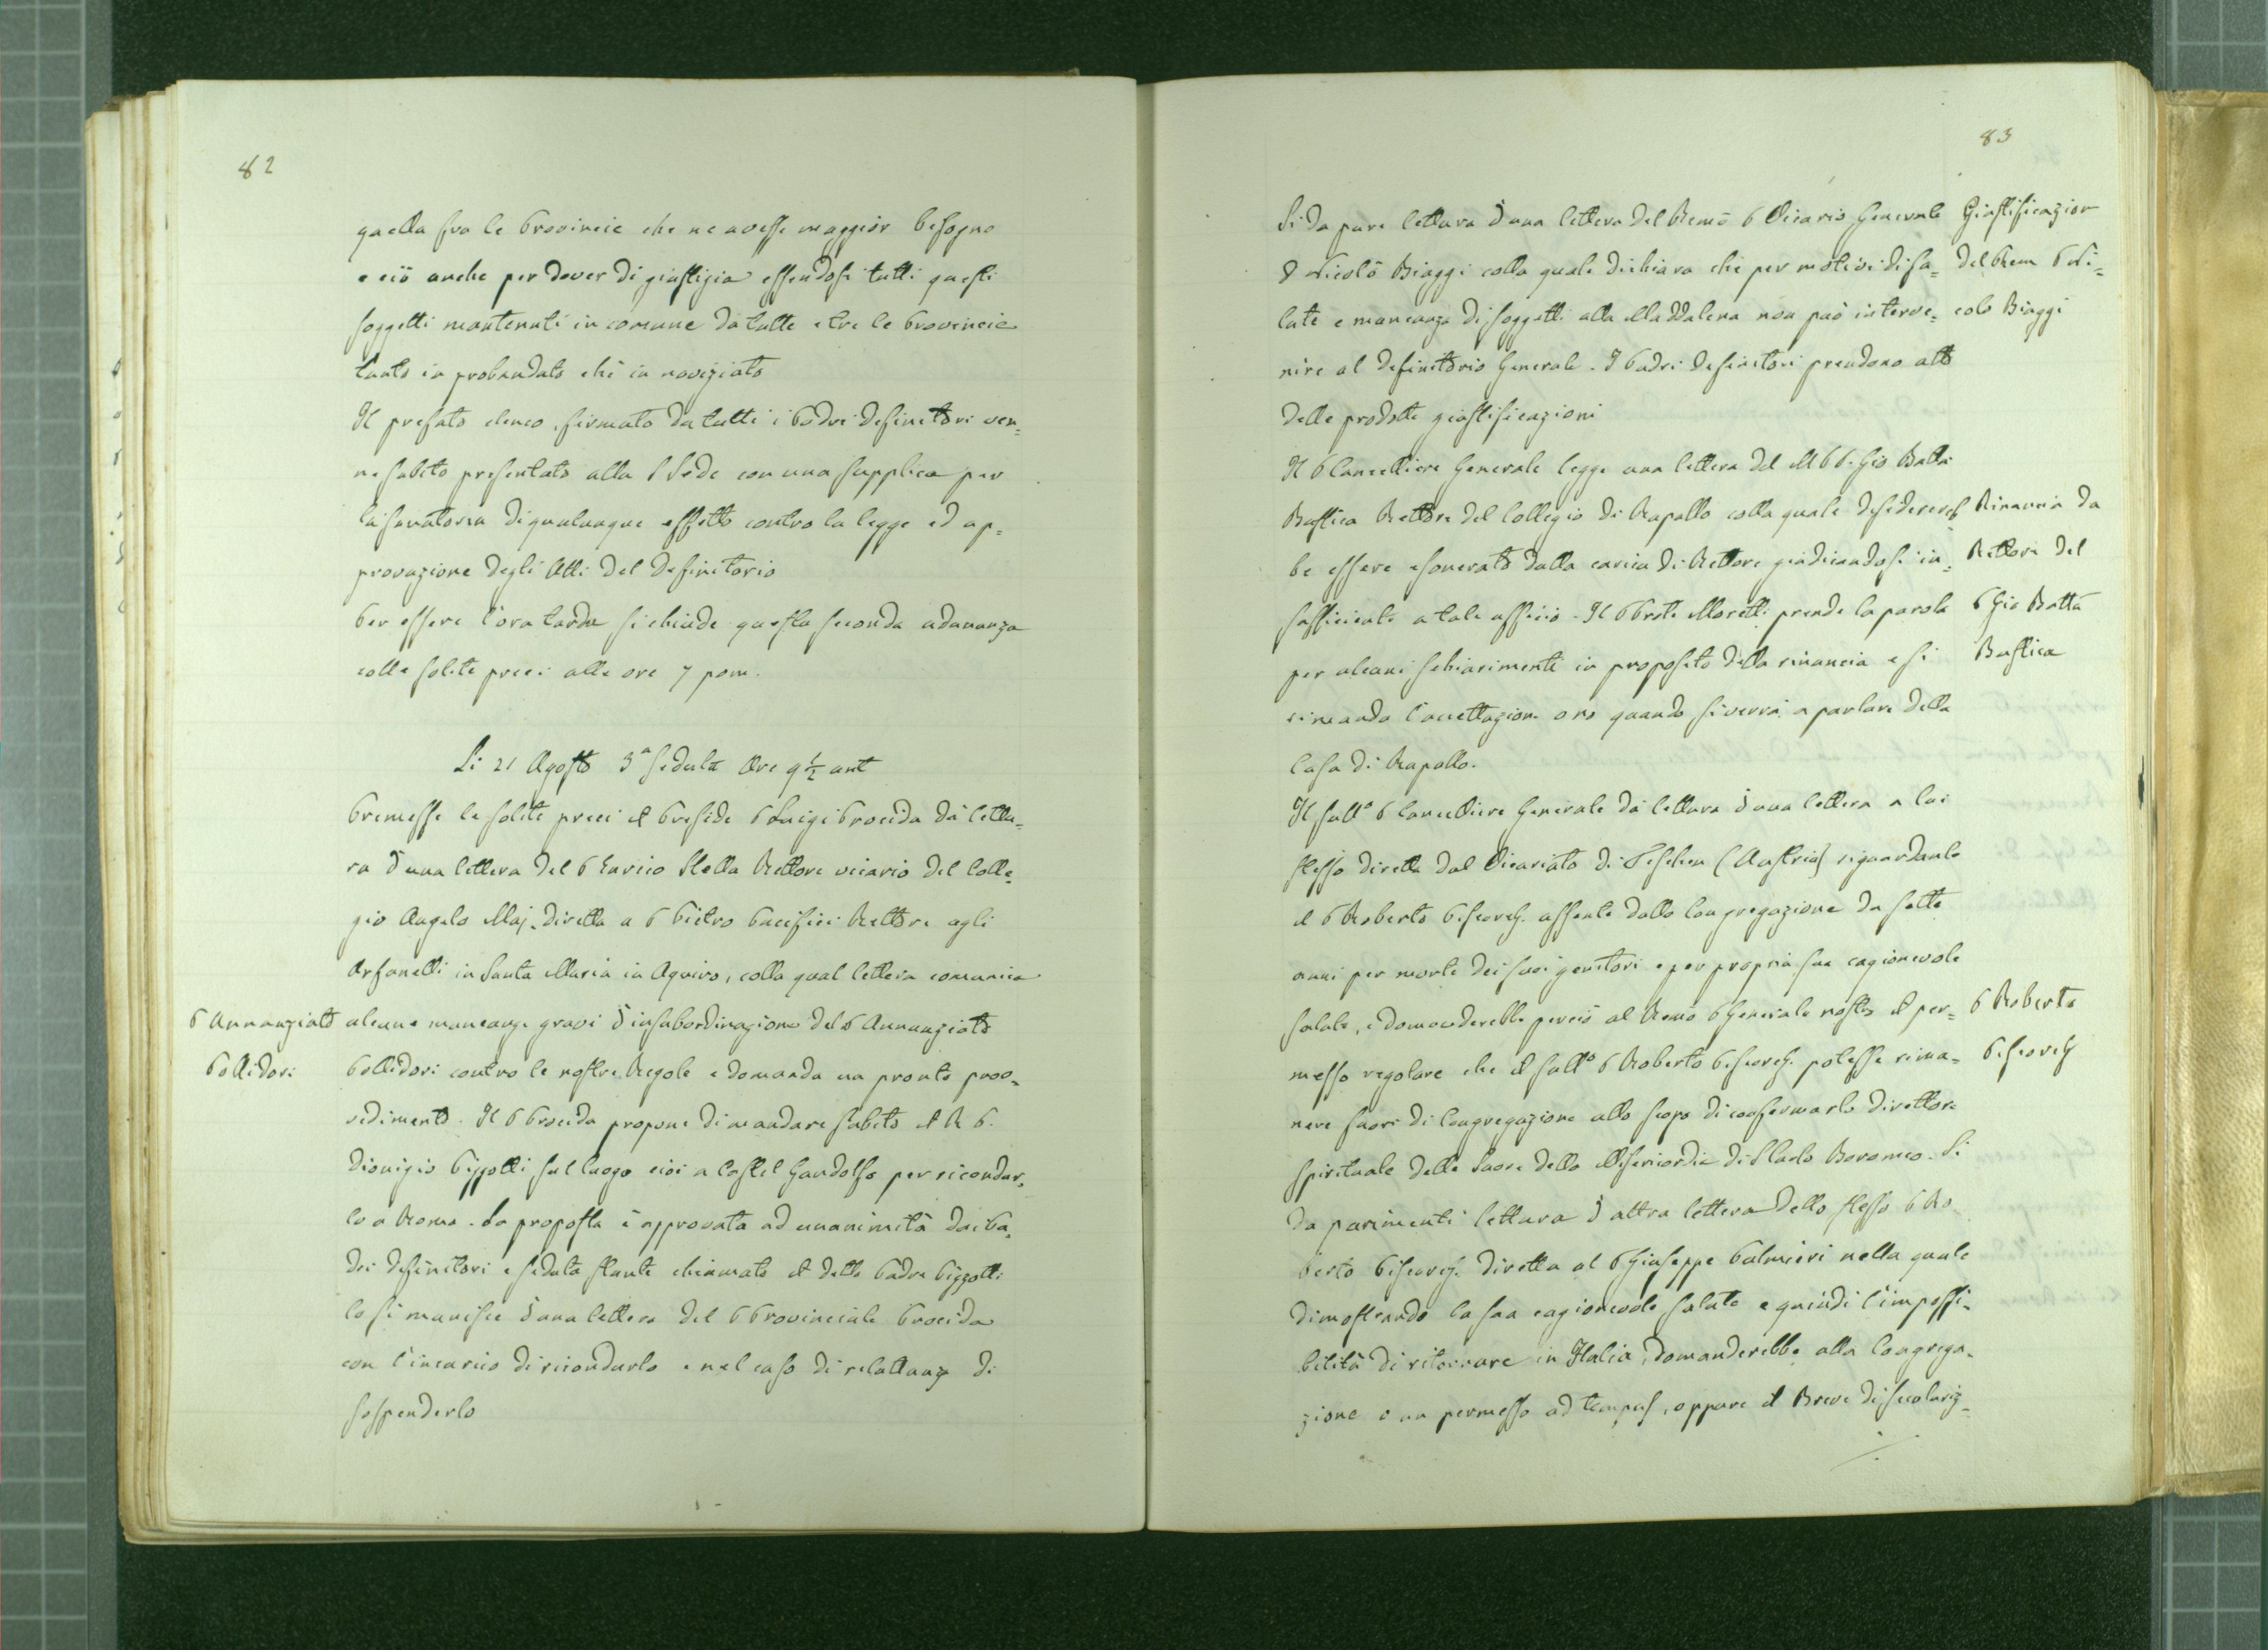 82
quella fra le Provincie che ne avesse maggior bisogno
e ciò anche per dover di giustizia essendosi tutti questi
soggetti mantenuti in comune da tutte e tre le Provincie
tanto in probandato che in noviziato
Il prefato elenco, firmato da tutti i Padri Definitori ven=
ne subito presentato alla S Sede con una supplica per
la sanatoria di qualunque effetto contro la legge ed ap=
provazione degli Atti del Definitorio
Per essere l'ora tarda si chiude questa seconda adunanza
colle solite preci alle ore 7 pom.
Li 21 Agosto 3ª seduta Ore 9 1/2 ant
Premesse le solite preci il Preside P Luigi Procida dà lettu=
ra d'una lettera del P Enrico Stella Rettore vicario del Colle=
gio Angelo Maj. diretta a P Pietro Pacifici Rettore agli
Orfanelli in Santa Maria in Aquiro, colla qual lettera comunica
P Annunziato
Pollidori
alcune mancanze gravi d'insubordinazione del P Annunziato
Pollidori contro le nostre Regole e domanda un pronto prov=
vedimento. Il P Procida propone di mandare subito il R P.
Dionigio Pizzotti sul luogo cioè a Castel Gandolfo per ricondur=
lo a Roma. La proposta è approvata ad unanimità dai Pa=
dri definitori e seduta stante chiamato il detto Padre Pizzotti
lo si munisce d'una lettera del P Provinciale Procida
con l'incarico di ricondurlo e nel caso di reluttanza di
sospenderlo
83
Si da pure lettura d'una lettera del Remo P Vicario Generale
D Nicolò Biaggi colla quale dichiara che per motivi di sa=
lute e mancanza di soggetti alla Maddalena non può interve=
nire al Definitorio Generale. I Padri Definitori prendono atto
delle prodotte giustificazioni
Giustificazion
del Rem P Ni=
colo Biaggi
Il P Cancelliere Generale legge una lettera del M P P. Gio Batta
Bustica Rettore del Collegio di Rapallo colla quale desiderereb
be essere esonerato dalla carica di Rettore giudicandosi in=
sufficiente a tale ufficio. Il P Prete Moretti prende la parola
per alcuni schiarimenti in proposito della rinuncia e si
rimanda l'accettazione o no quando si verrà a parlare della
Casa di Rapallo.
Rinuncia da
Rettore del
P Gio Batta
Bustica
Il sudd° P Cancelliere Generale dà lettura d'una lettera a lui
stesso diretta dal Vicariato di Teschen (Austria) riguardante
il P Roberto Piscorch. assente dalla Congregazione da sette
anni per morte dei suoi genitori e per propria sua cagionevole
salute, e domanderebbe perciò al Remo P Generale nostro il per=
messo regolare che il sudd° P Roberto Piscorch. potesse rima=
nere fuori di Congregazione allo scopo di confermarlo direttore
spirituale delle Suore della Misericordia di S Carlo Boromeo. Si
da parimenti lettura d'altra lettera dello stesso P Ro
berto Piscorch. diretta al P Giuseppe Palmieri nella quale
dimostrando la sua cagionevole salute e quindi l'impossi=
bilità di ritornare in Italia, domanderebbe alla Congrega=
zione o un permesso ad tempus, oppure il Breve di secolariz=
P Roberto
Piscorch